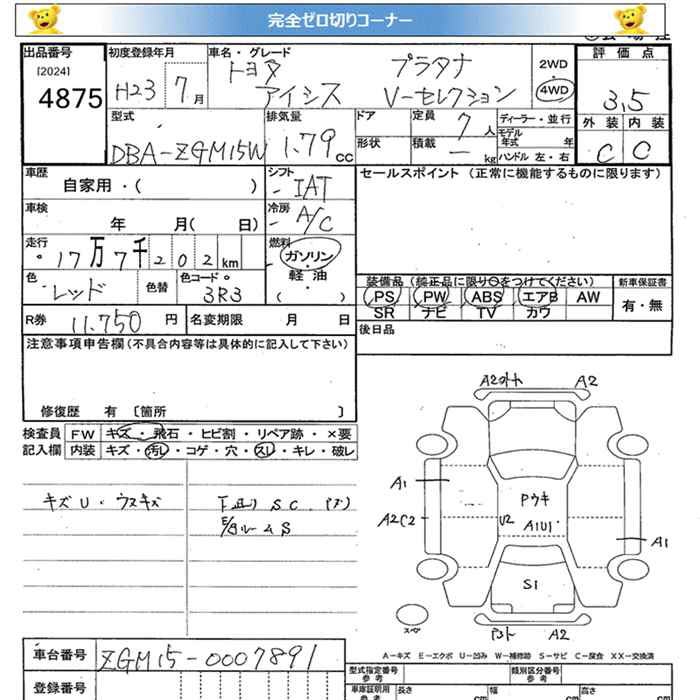 完全ゼロ切りコーナー
出品番号
[2024]
4875
初度登録年月
H23 7月
車名・グレード
トヨタ プラタナ
アイシス V-セレクション
2WD
・
4WD
評価点
3.5
外装 内装
C C
型式
DBA-ZGM15W
排気量
1.79 cc
ドア
形状
定員 7 人
積載 - kg
ディーラー・並行
モデル年式 年
ハンドル 左・右
車歴
自家用・( )
シフト
IAT
セールスポイント (正常に機能するものに限ります)
車検
年 月( 日)
冷房
A/C
走行
17万7千202km
燃料
ガソリン
軽・油
( )
色
レッド
色替
色コード
3R3
装備品 (純正品に限り○をつけてください)
PS PW ABS エアB AW
SR ナビ TV カワ
新車保証書
有・無
R券 11,750 円
名変期限 月 日
後日品
注意事項申告欄(不具合内容等は具体的に記入して下さい)
修復歴 有 〔箇所 〕
検査員 FW キズ・飛石・ヒビ割・リペア跡・×要
記入欄 内装 キズ・汚レ・コゲ・穴・スレ・キレ・破レ
キズU・ウスキズ
下廻り S C
ルームS
A2 A2
A1
A2C2
Pウキ
U2 A1U1
A1
S1
スペア
A2
A-キズ E-エクボ U-凹み W-補修跡 S-サビ C-腐食 XX-交換済
車台番号 ZGM15-0007891
登録番号
型式指定番号
参考
類別区分番号
参考
車庫証明用
参考
長さ cm 幅 cm 高さ cm